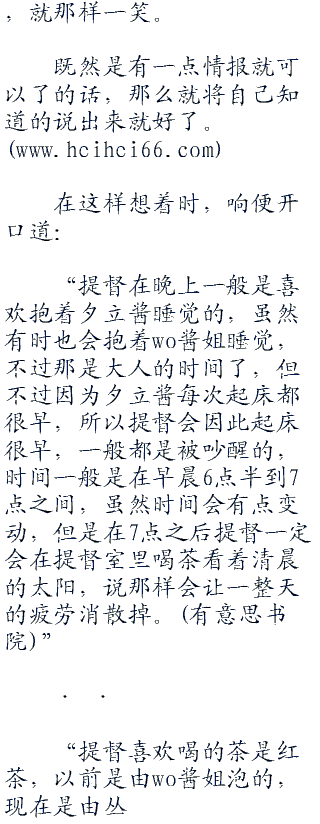 ，就那样一笑。
既然是有一点情报就可
以了的话，那么就将自己知
道的说出来就好了。
(www.hcihci66.com)
在这样想着时，响便开
口道：
“提督在晚上一般是喜
欢抱着夕立酱睡觉的，虽然
有时也会抱着wo酱姐睡觉，
不过那是大人的时间了，但
不过因为夕立酱每次起床都
很早，所以提督会因此起床
很早，一般都是被吵醒的，
时间一般是在早晨6点半到7
点之间，虽然时间会有点变
动，但是在7点之后提督一定
会在提督室里喝茶看着清晨
的太阳，说那样会让一整天
的疲劳消散掉。(有意思书
院)”
． ．
“提督喜欢喝的茶是红
茶，以前是由wo酱姐泡的，
现在是由丛